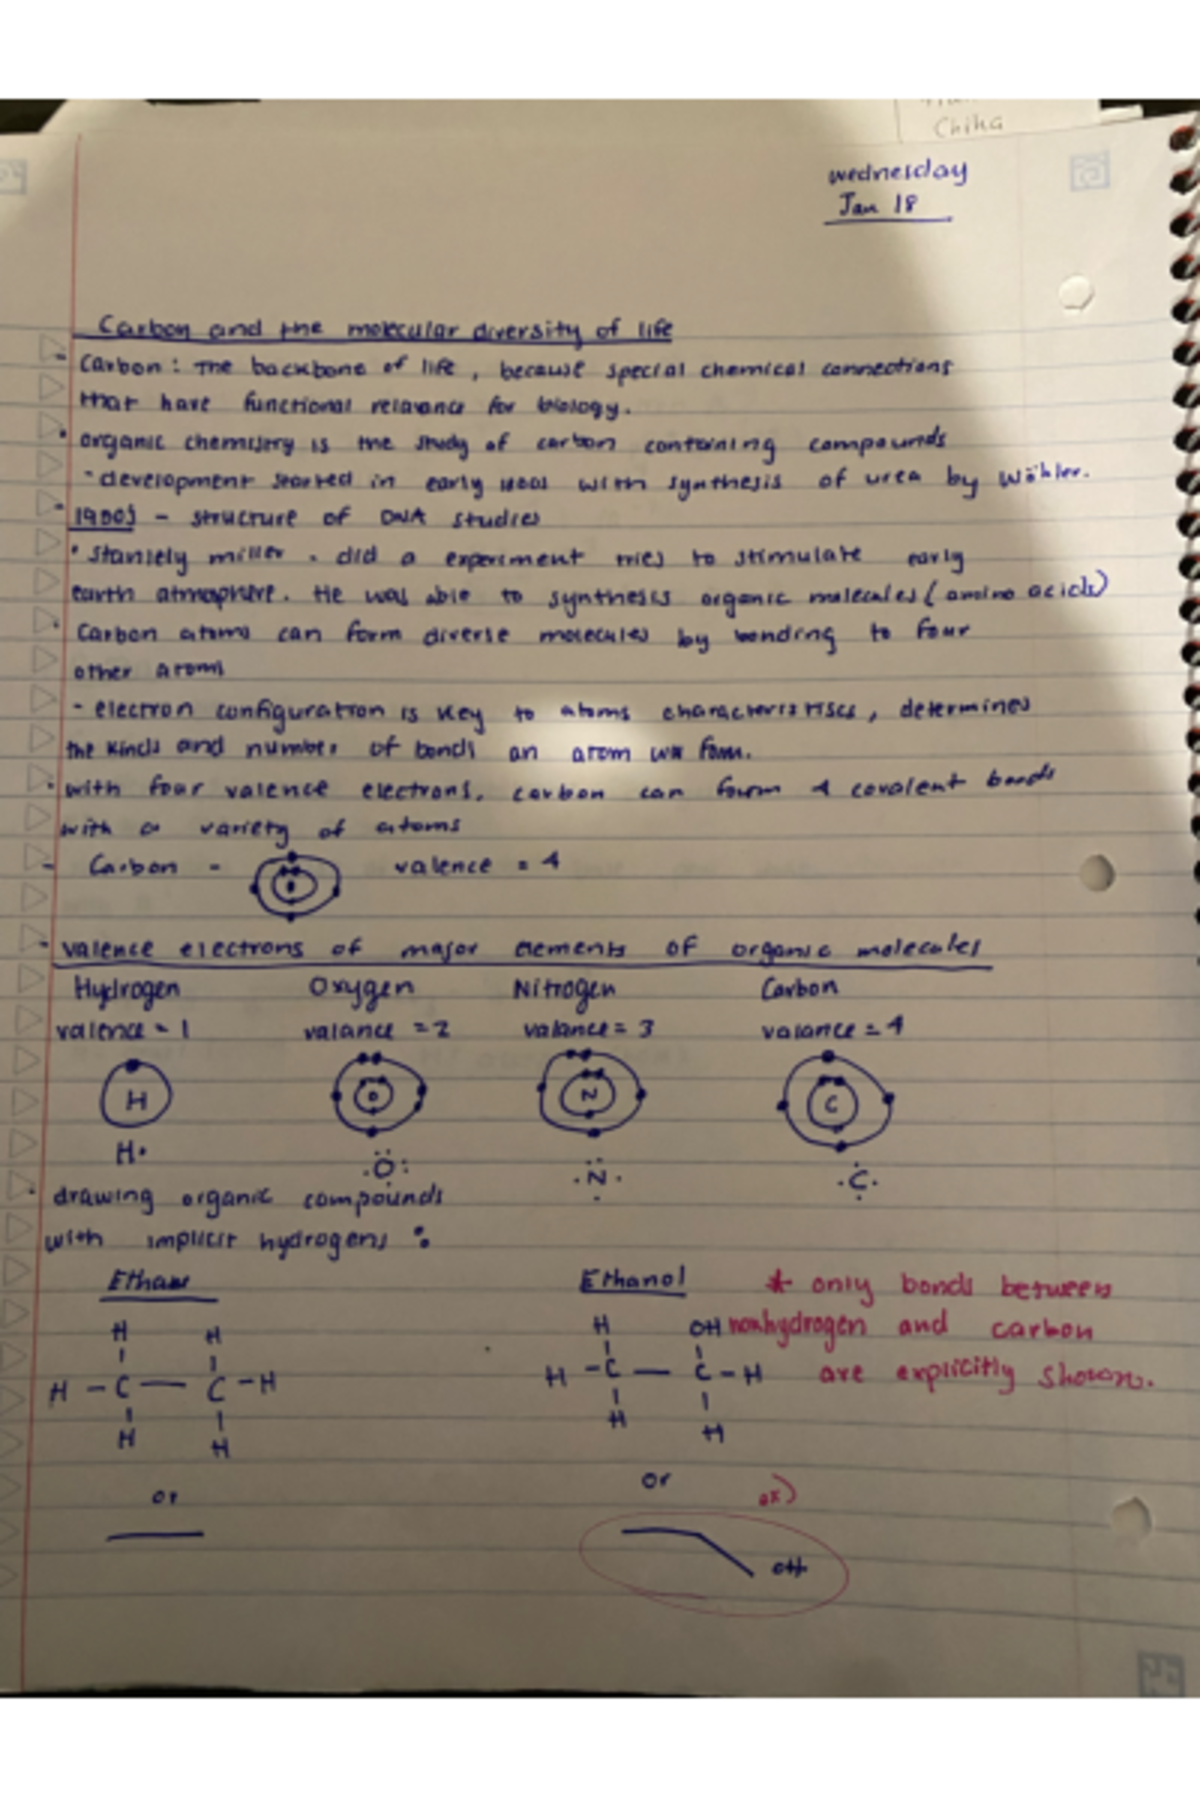 China
wednesday
Jan 18
Carbon and the molecular diversity of life
- Carbon : The backbone of life , because special chemical connections
that have functional relavance for biology.
• organic chemistry is the study of carbon containing compounds
- development started in early 1800s with synthesis of urea by Wöhler.
- 1900s - structure of DNA studies
• Stanlely miller - did a experiment tries to stimulate early
earth atmosphere. He was able to synthesis organic molecules ( amino acids)
• Carbon atoms can form diverse molecules by bonding to four
other atoms
- electron configuration is key to atoms characteristiscs, determines
the kinds and number of bonds an atom will form.
• with four valence electrons, carbon can form 4 covalent bonds
with a variety of atoms
- Carbon - valence = 4
- valence electrons of major elements of organic molecules
Hydrogen Oxygen Nitrogen Carbon
valence = 1 valance = 2 valance = 3 valance = 4
H O N C
H· ·Ö: ·N· ·C·
• drawing organic compounds
with implicit hydrogens :
Ethane Ethanol * only bonds between
H H H OH nonhydrogen and carbon
H - C - C - H H - C - C - H are explicitly shown.
H H H H
or or ex)
OH